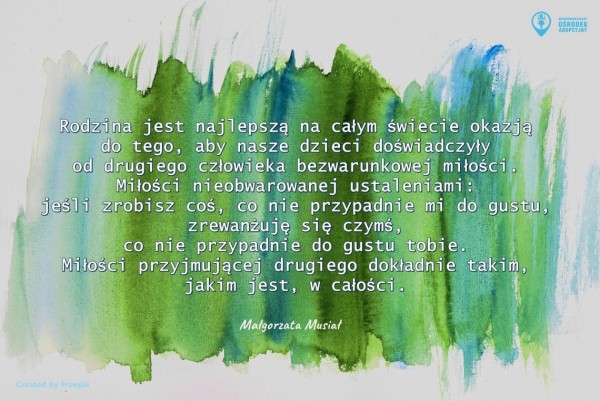 OŚRODEK
ADOPCYJNY
Rodzina jest najlepszą na całym świecie okazją
do tego, aby nasze dzieci doświadczyły
od drugiego człowieka bezwarunkowej miłości.
Miłości nieobwarowanej ustaleniami:
jeśli zrobisz coś, co nie przypadnie mi do gustu,
zrewanżuję się czymś,
co nie przypadnie do gustu tobie.
Miłości przyjmującej drugiego dokładnie takim,
jakim jest, w całości.
Małgorzata Musiał
Created by Freepik